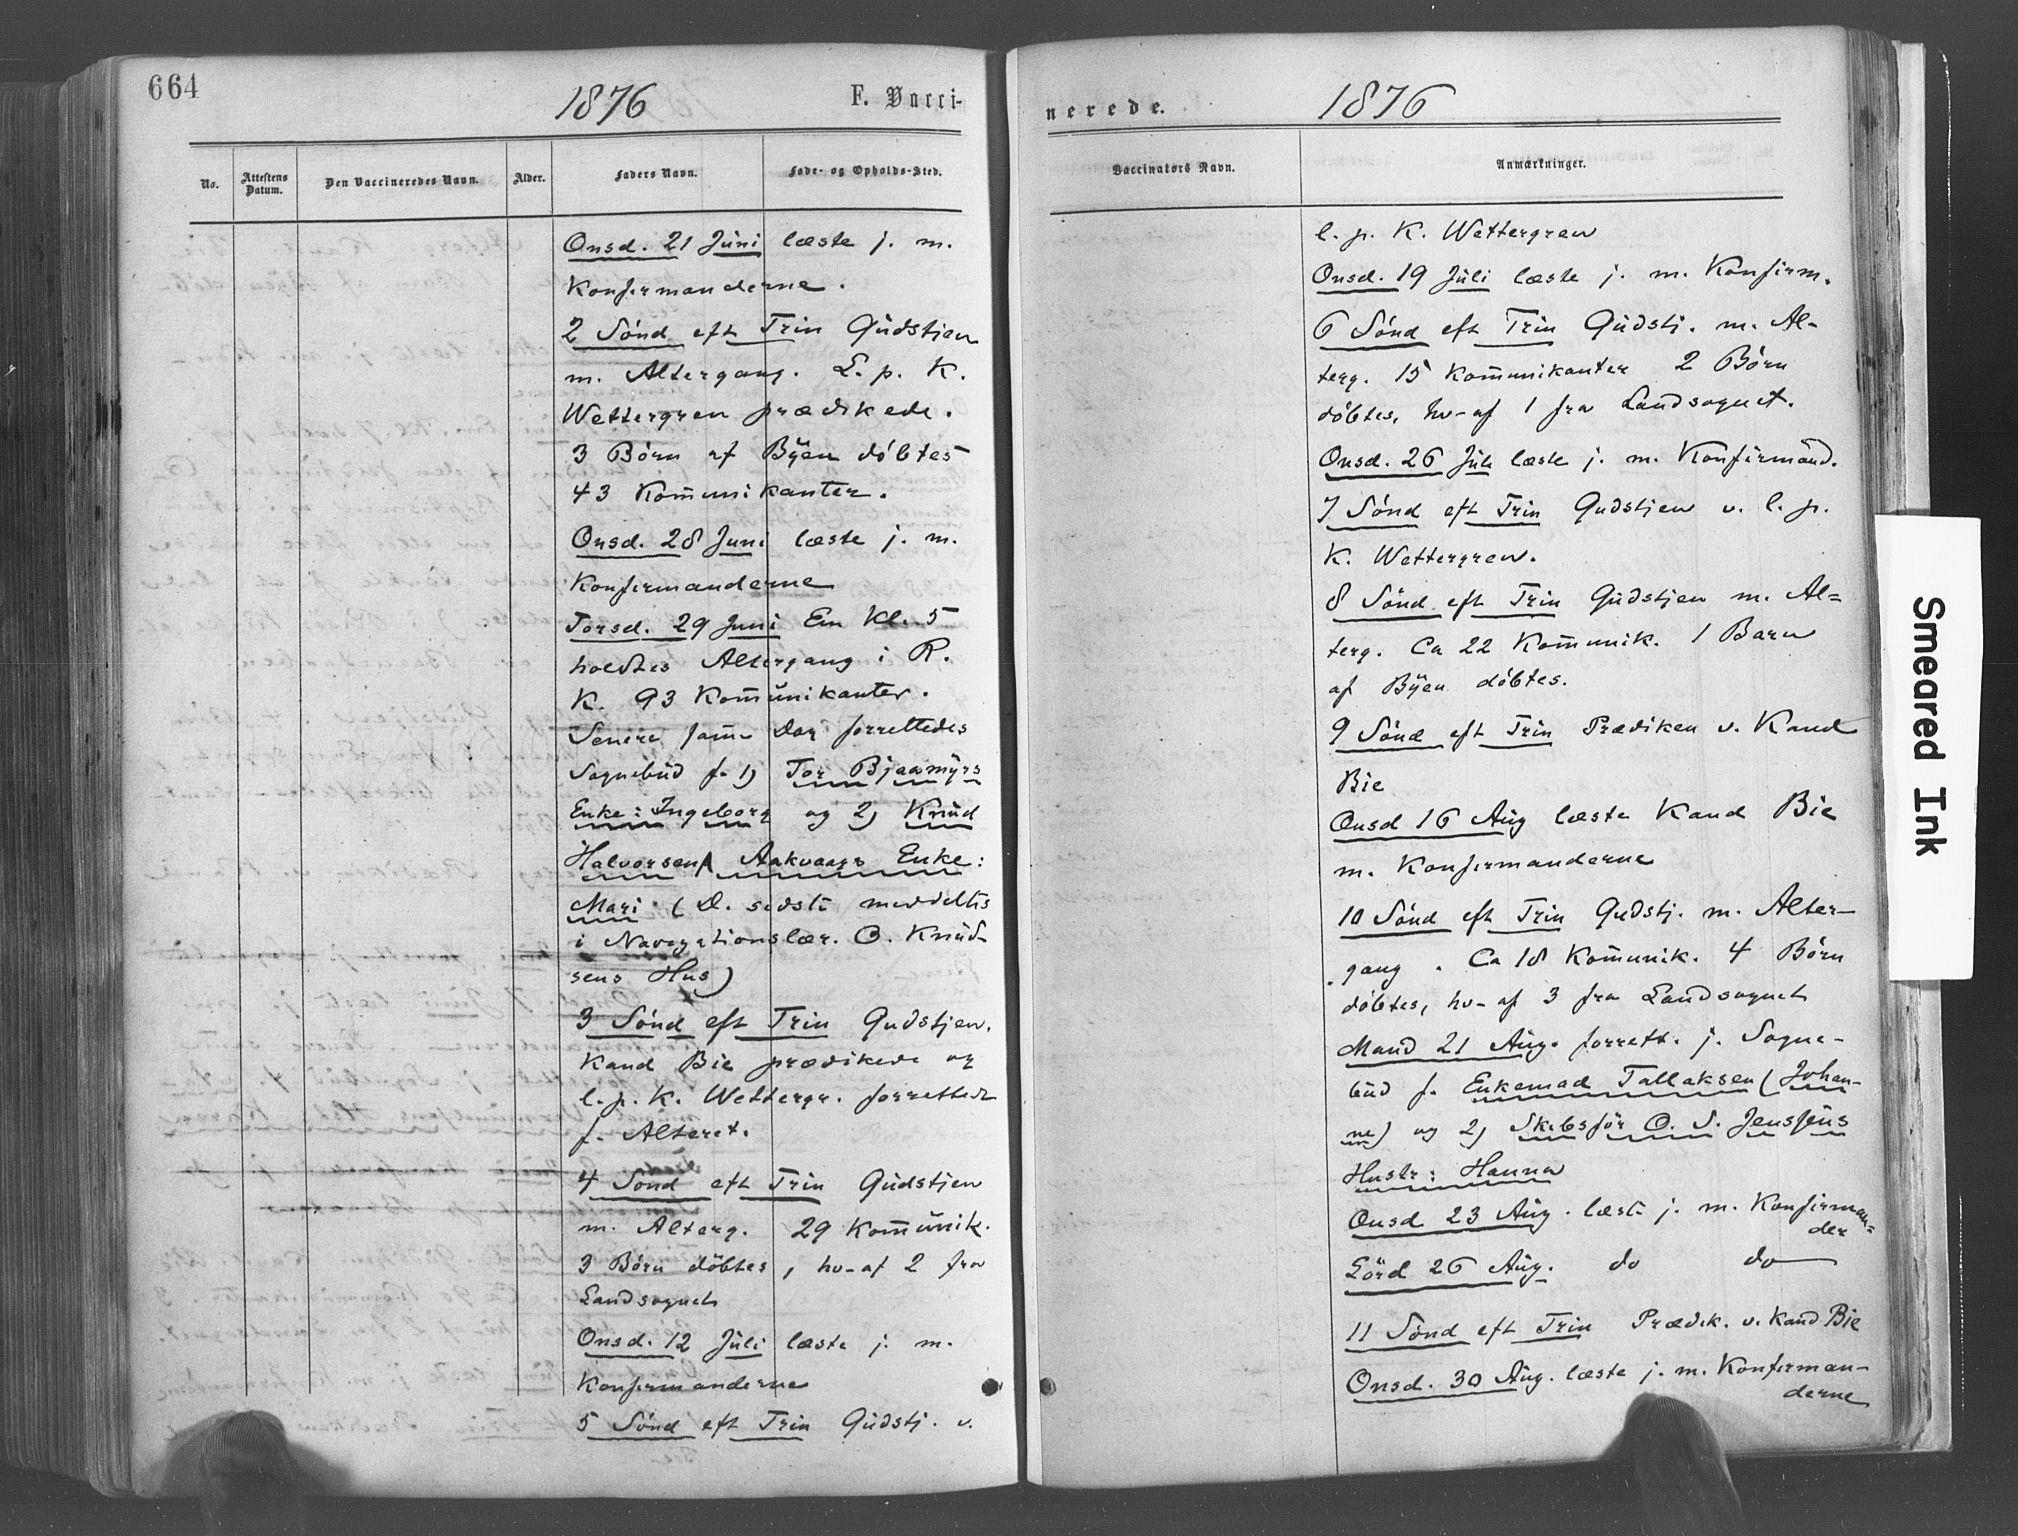 664
1876
F. Vacci-
No.
Attestens Datum.
Den Vaccineredes Navn.
Alder.
Faders Navn.
Føde- og Opholds-Sted.
Onsd. 21 Juni læste j. m.
Konfirmanderne.
2 Sönd eft Trin Gudstjen
m. Altergang. L. p. K.
Wettergren prædikede.
3 Börn af Byen döbtes
43 Kommunikanter.
Onsd. 28 Juni læste j. m.
Konfirmanderne
Torsd. 29 Juni Em Kl. 5
holdtes Altergang i R.
K. 93 Kommunikanter.
Senere samme Dag forrettedes
Sognebud f. 1) Tor Bjaamyrs
Enke: Ingeborg og 2) Knud
Halvorsen Aakvaags Enke:
Mari (D. sidste meddeltes
i Navigationslær. O. Knud-
sens Hus)
3 Sönd eft Trin Gudstjen.
Kand Bie prædikede og
l. p. K. Wettergr. forrettede
f. Alteret.
4 Sönd eft Trin Gudstjen
m. Alterg. 29 Kommunik.
3 Börn döbtes, hv-af 2 fra
Landsognet
Onsd. 12 Juli læste j. m.
Konfirmanderne
5 Sönd eft Trin Gudstj. v.
nerede.
1876
Vaccinators Navn.
Anmærkninger.
l. p. K. Wettergren
Onsd. 19 Juli læste j. m. Konfirm.
6 Sönd eft Trin Gudstj. m. Al-
terg. 15 Kommunikanter 2 Börn
döbtes, hv-af 1 fra Landsognet.
Onsd. 26 Juli læste j. m. Konfirmand.
7 Sönd eft Trin Gudstjen v. l. p.
K. Wettergren.
8 Sönd eft Trin Gudstjen m. Al=
terg. Ca 22 Kommunik. 1 Barn
af Byen döbtes.
9 Sönd eft Trin Prædiken v. Kand
Bie
Onsd 16 Aug læste Kand Bie
m. Konfirmanderne
10 Sönd eft Trin Gudstj. m. Alter-
gang. Ca 18 Kommunik. 4 Börn
döbtes, hv-af 3 fra Landsognet
Mand 21 Aug. forrett. j. Sogne-
bud f. Enkemad Tallaksen (Johan-
ne) og 2) Skibsför O. S. Jensens
Hustr: Hanna
Onsd 23 Aug. læste j. m. Konfirman=
der
Lörd 26 Aug. do do
11 Sönd eft Trin Prædik. v. Kand Bie
Onsd. 30 Aug. læste j. m. Konfirman-
derne
Smeared Ink